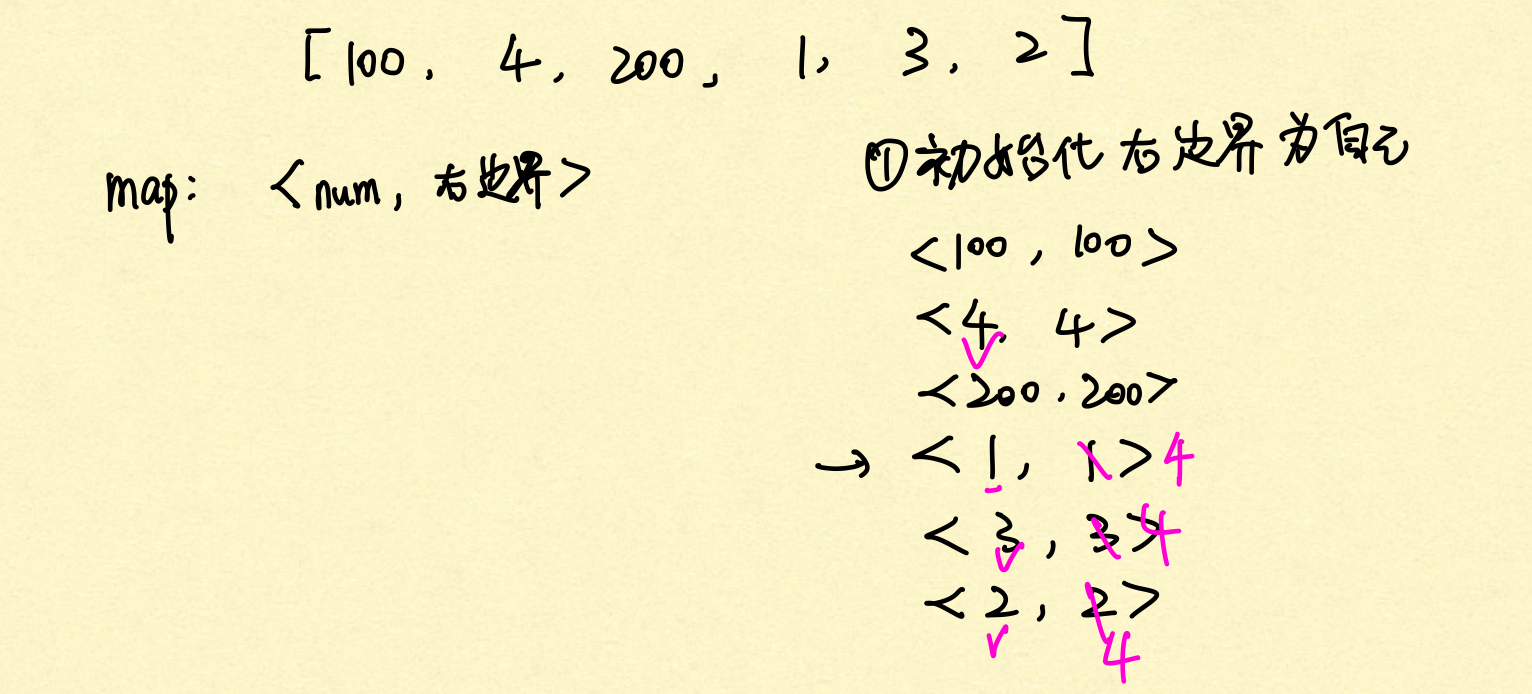 [100, 4, 200, 1, 3, 2]
map: <num, 右边界>
①初始代右边界为自己
<100, 100>
<4, 4>
<200, 200>
→ <1, 1> 4
<3, 3> 4
<2, 2>
4